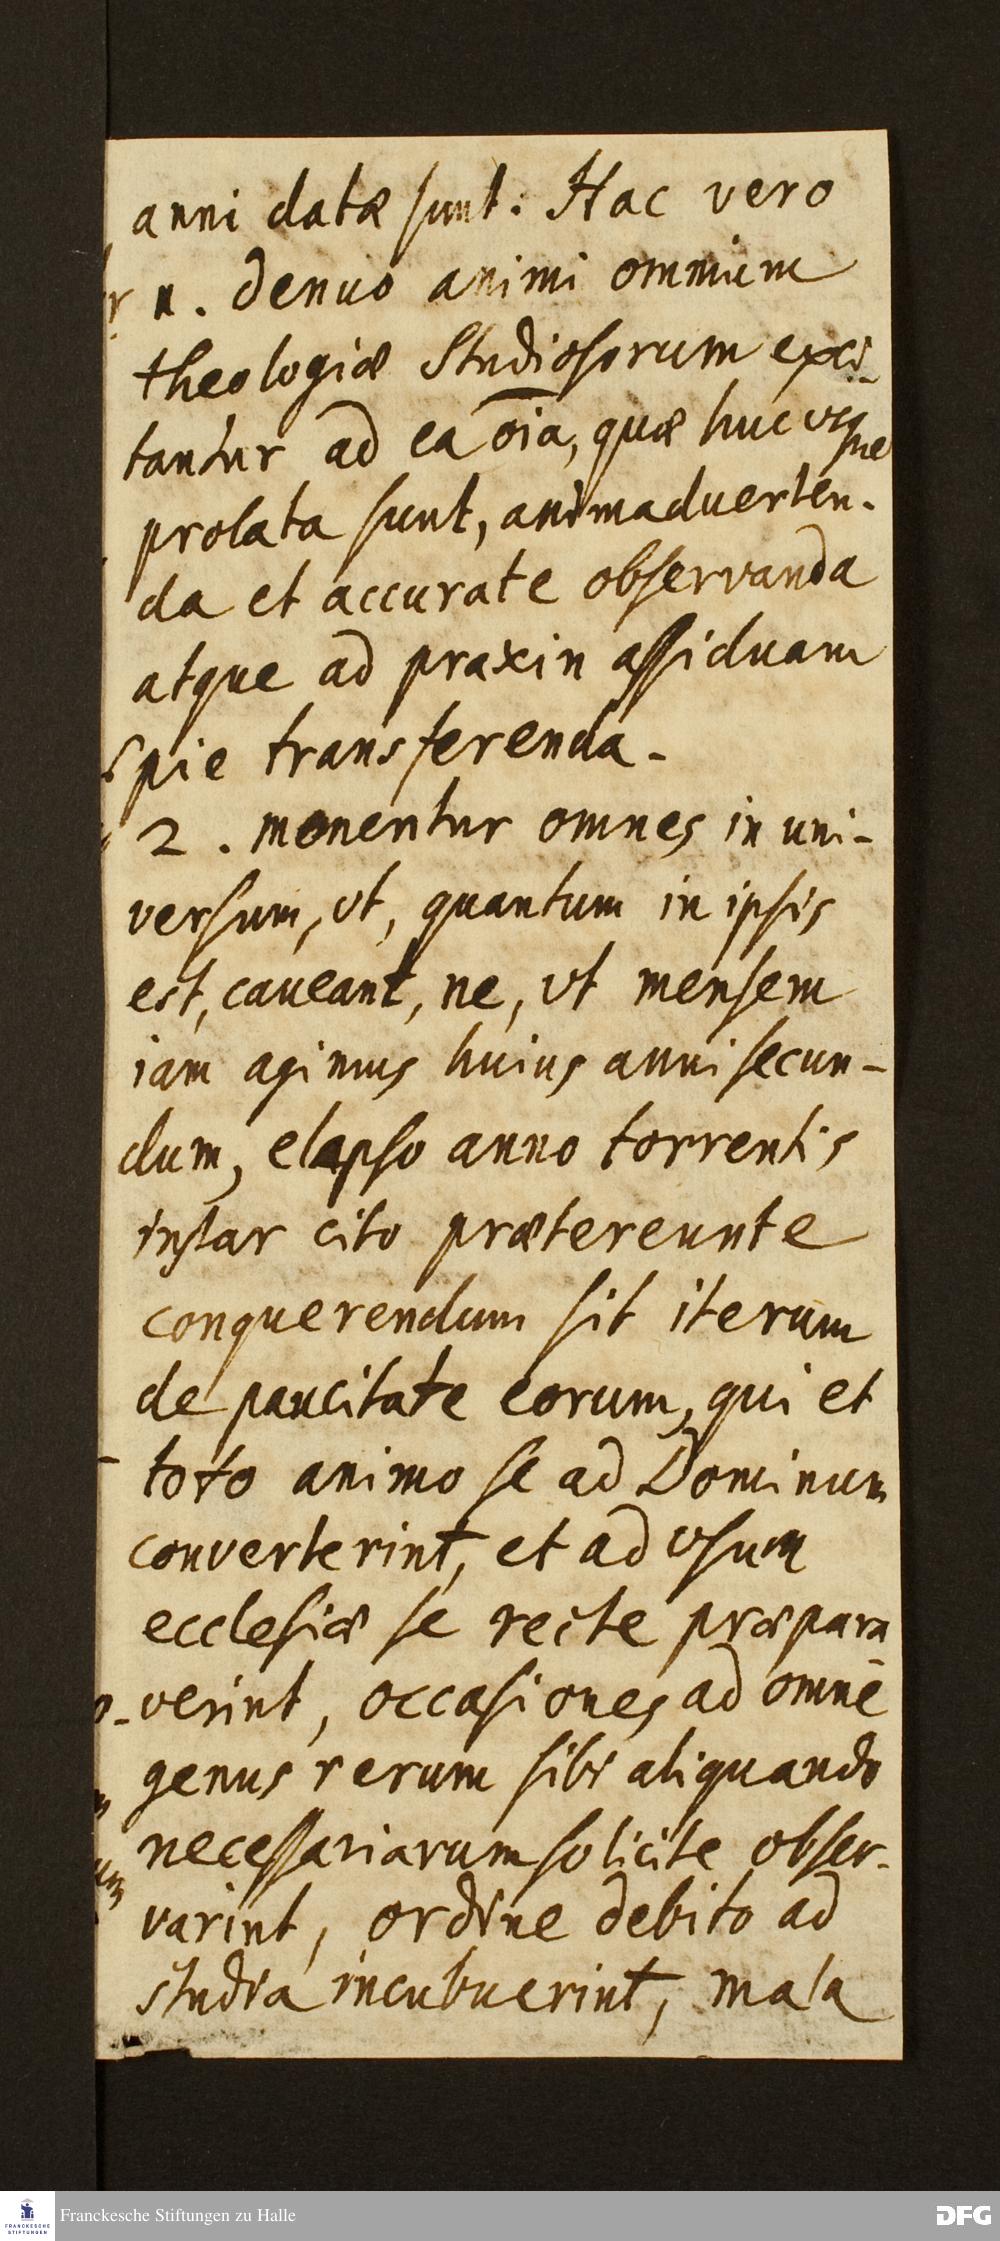 anni datæ sunt: Hac vero
1. denuo animi omnium
theologiæ Studiosorum exci-
tantur ad ea oīa, quæ huc usque
prolata sunt, animaduerten-
da et accurate observanda
atque ad praxin assiduam
pie transferenda.
2. monentur omnes in uni-
versum, vt, quantum in ipsis
est, caveant, ne, vt mensem
iam agimus huius anni secun-
dum, elapso anno torrentis
instar cito prætereunte
conquerendum sit iterum
de paucitate eorum, qui et
toto animo se ad Dominum
converterint, et ad vsum
ecclesiæ se recte præpara-
verint, occasiones ad omnē
genus rerum sibi aliquando
necessariarum solicite obser-
varint, ordine debito ad
studia incubuerint, mala
Franckesche Stiftungen zu Halle
DFG
FRANCKESCHE
STIFTUNGEN